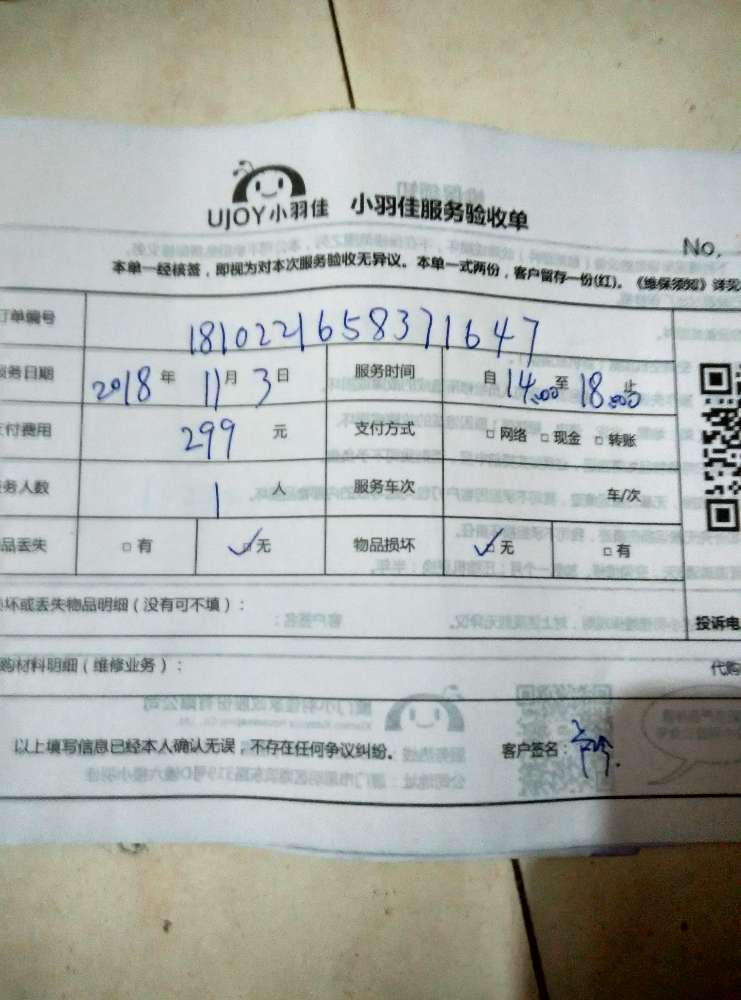 UJOY小羽佳 小羽佳服务验收单
No.
本单一经核签，即视为对本次服务验收无异议。本单一式两份，客户留存一份(红)。《维保须知》详见
订单编号 1810221658371647
服务日期 2018年11月3日 服务时间 自14:00至18:00止
支付费用 299元 支付方式 □网络 □现金 □转账
服务人数 1人 服务车次 车/次
品丢失 □有 ✓□无 物品损坏 ✓□无 □有
损坏或丢失物品明细（没有可不填）：
投诉电
购材料明细（维修业务）：
代购
以上填写信息已经本人确认无误，不存在任何争议纠纷。 客户签名：